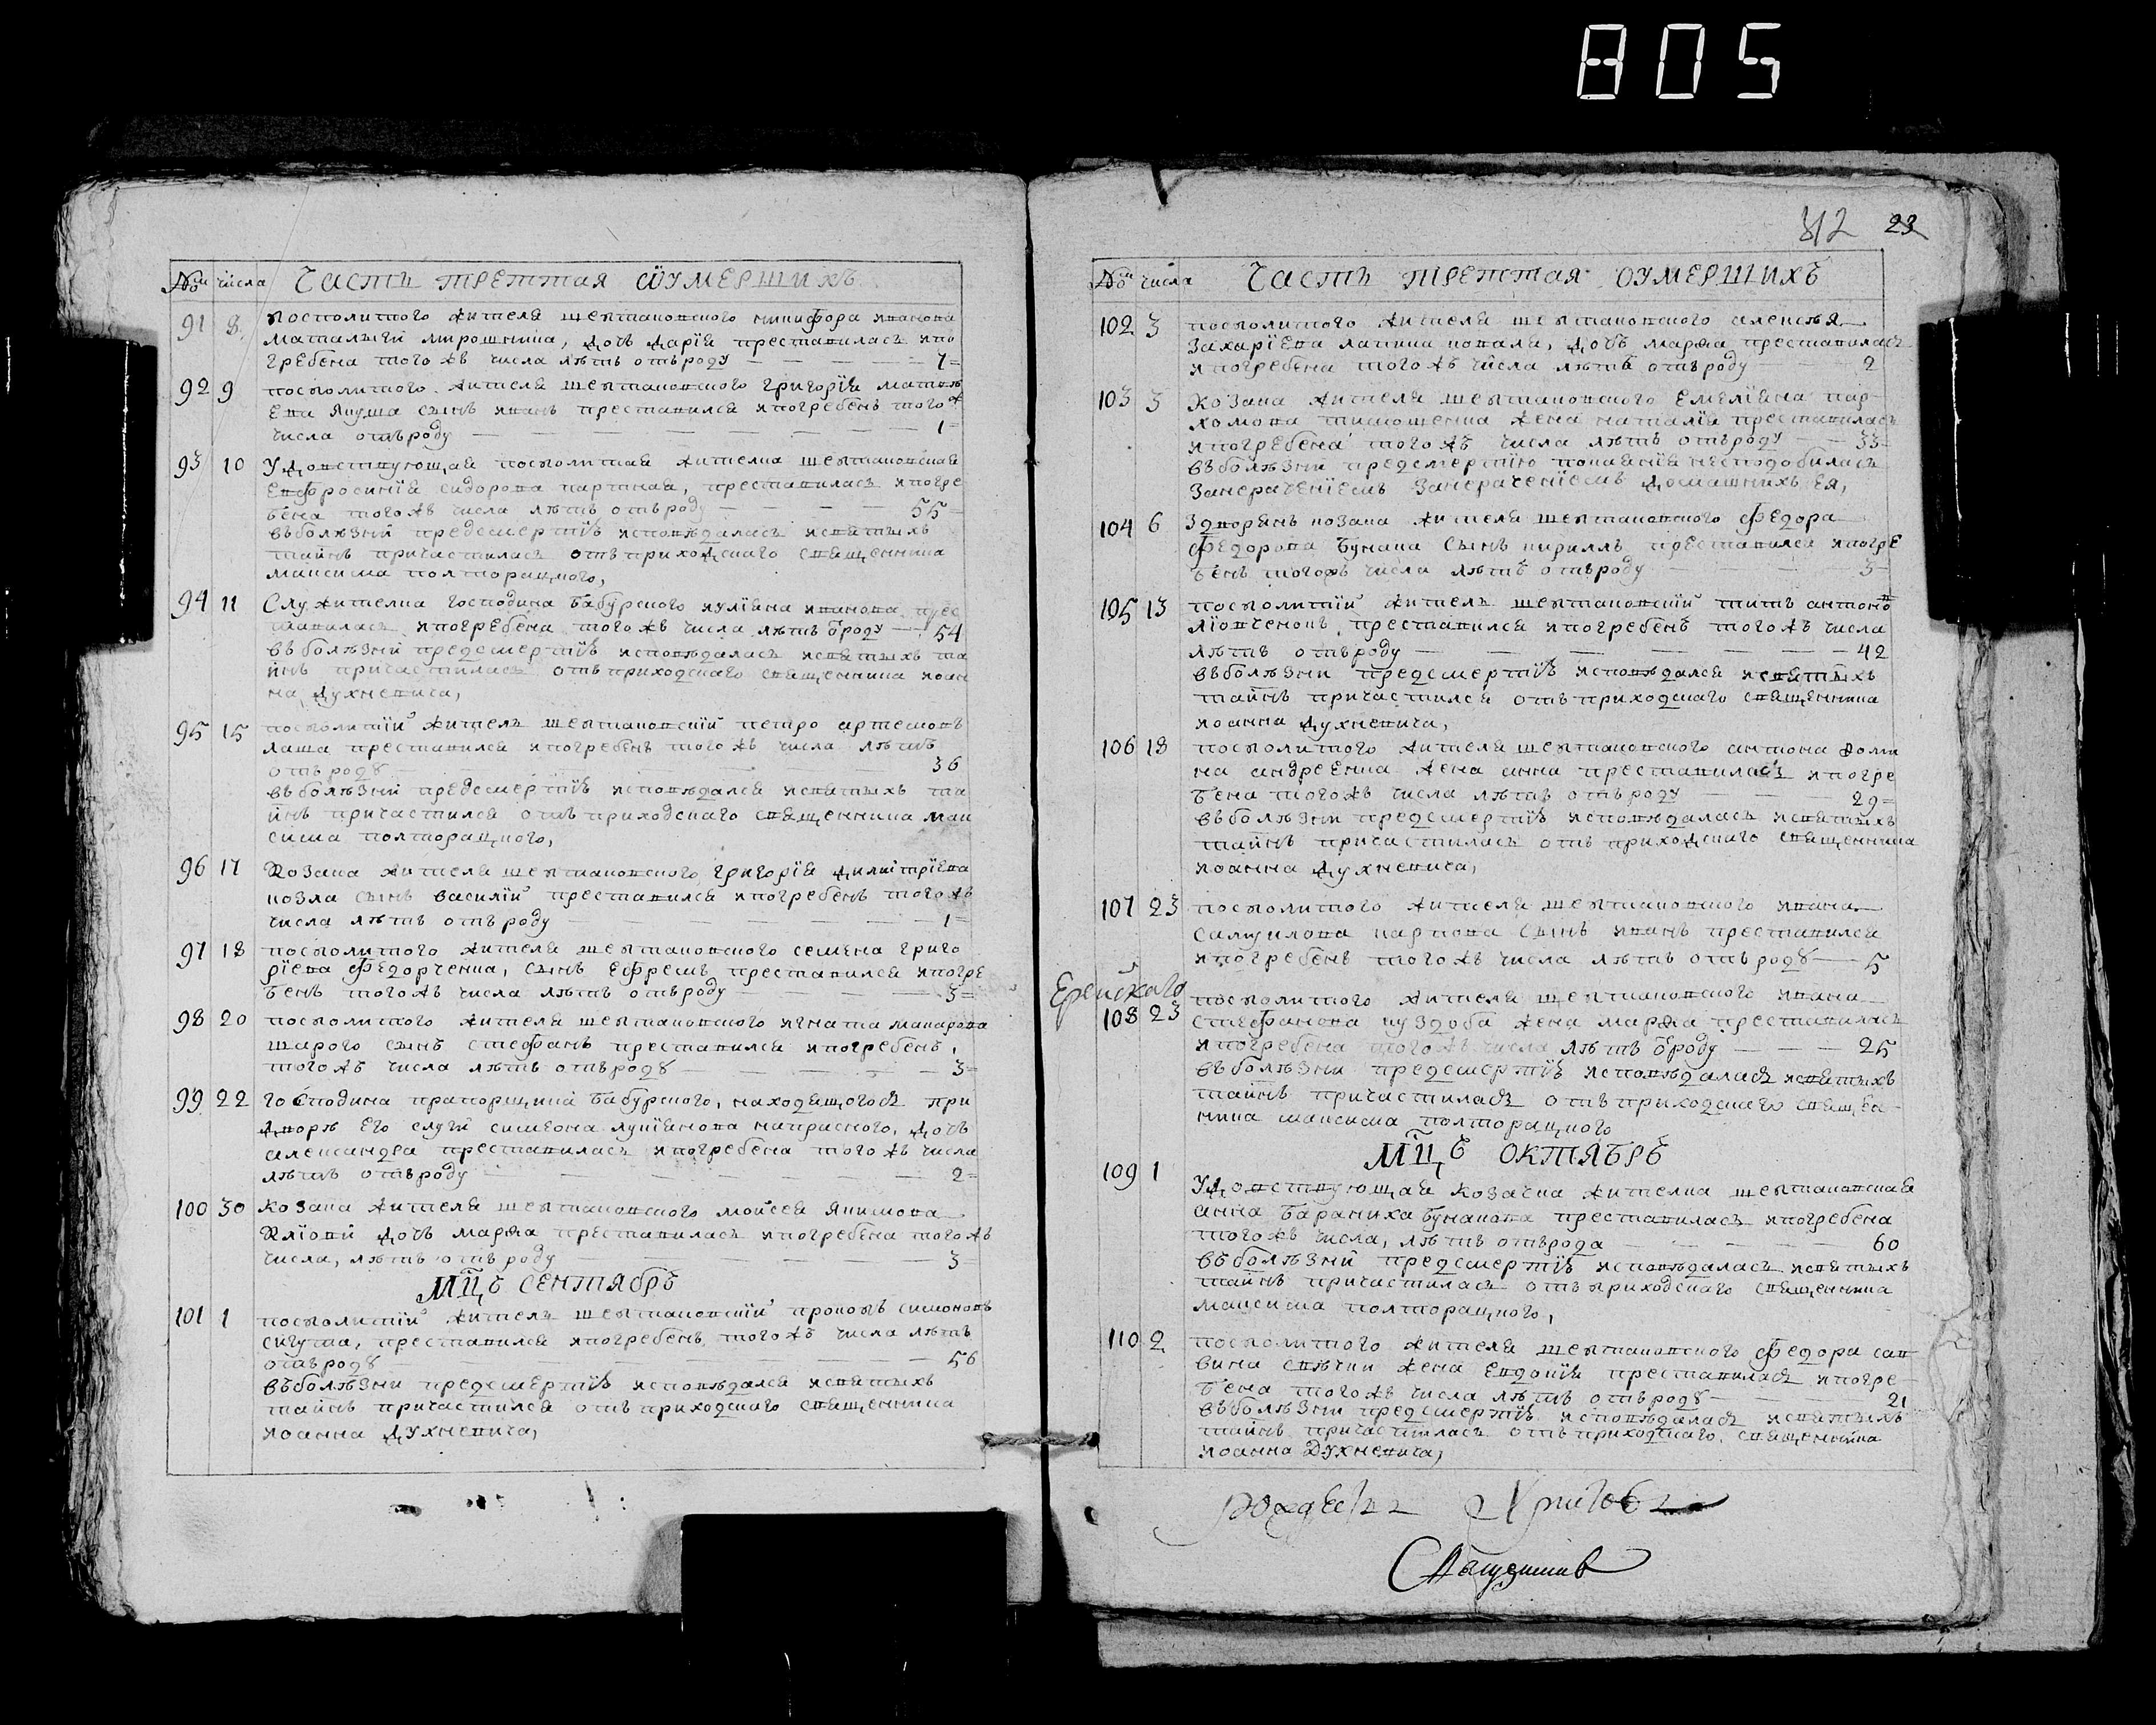 805
№ числа Часть треттая оумершихъ
91 8 посполитого жителя шептаковского никифора иванова
матвѣя мирошника, дочь дарія преставилась ипо
гребена того жъ числа лѣтъ отъ роду 7
92 9 посполитого жителя шептаковского григорія матвѣ
ева якуша сынъ иванъ преставился ипогребенъ того ж
числа отъ роду 1
93 10 Удовствующая посполитая жителка шептаковская
Евфросинія сидорова, преставилась ипогре
бена того жъ числа лѣтъ отъ роду 55
въболѣзни предсмертнѣ исповѣдалась исвятыхъ
таинъ причастилась отъ приходскаго священника
максима полторацкого,
94 11 Служителка господина бабурского иуліяна иванова прес
тавилась ипогребена того жъ числа лѣтъ о роду 54
въболѣзни предсмертнѣ исповѣдалась исвятыхъ та
инъ причастилась отъ приходскаго священника иоан
на духневича,
95 15 посполитій житель шептаковскій петро артемовъ
лаша преставился ипогребенъ того жъ числа лѣтъ
отъ роду 36
въболѣзни предсмертнѣ исповѣдался исвятыхъ та
инъ причастился отъ приходскаго священника мак
сима полторацкого,
96 17 Козака жителя шептаковского григорія димитріева
козла сынъ василій преставился ипогребенъ того жъ
числа лѣтъ отъ роду 1
97 18 посполитого жителя шептаковского семена григо
ріева федорченка, сынъ Ефремъ преставился ипогре
бенъ того жъ числа лѣтъ отъ роду 3
98 20 посполитого жителя шептаковского игната макарова
шарого сынъ стефанъ преставился ипогребенъ,
того жъ числа лѣтъ отъ роду 3
99 22 господина прапорщика бабурского, находящогося при
дворѣ его слуги симеона лукіянова напрасного, дочь
александра преставилась ипогребена того жъ числа
лѣтъ отъ роду 2
100 30 Козака жителя шептаковского мойсея якимова
дочь марфа преставилась ипогребена того жъ
числа, лѣтъ отъ роду 3
Мцъ сентябрь
101 1 посполитій житель шептаковскій прокопъ симоновъ
сигута, преставился ипогребенъ того жъ числа лѣтъ
отъ роду 56
въболѣзни предсмертнѣ исповѣдался исвятыхъ
таинъ причастился отъ приходского священника
иоанна духневича,
23
№ числа Часть треттая оумершихъ
102 3 посполитого жителя шептаковского алексѣя
захаріева коваля, дочь марфа преставилась
ипогребена того жъ числа лѣтъ отъ роду 2
103 3 Козака жителя шептаковского емеліяна пар
хомова тимошенка жена наталія преставилась
ипогребена того жъ числа лѣтъ отъ роду 33
въболѣзни предсмертною покаянія несподобилась
занераченіемъ занераченіемъ домашнихъ ея,
104 6 козака жителя шептаковского федора
федорова бунака сынъ кириллъ преставился ипогре
бенъ того жъ числа лѣтъ отъ роду 3
105 13 посполитій житель шептаковскій титъ антонов
преставился ипогребенъ того жъ числа
лѣтъ отъ роду 42
въболѣзни предсмертнѣ исповѣдался исвятыхъ
таинъ причастился отъ приходского священника
иоанна духневича,
106 18 посполитого жителя шептаковского антона фоми
на андреенка жена анна преставилась ипогре
бена того жъ числа лѣтъ отъ роду 29
въболѣзни предсмертнѣ исповѣдалась исвятыхъ
таинъ причастилась отъ приходского священника
иоанна духневича,
107 23 посполитого жителя шептаковского ивана
самуилова карпова сынъ иванъ преставился
ипогребенъ того жъ числа лѣтъ отъ роду 5
108 23 посполитого жителя шептаковского ивана
стефанова куздоба жена марфа преставилась
ипогребена того жъ числа лѣтъ о роду 25
въболѣзни предсмертнѣ исповѣдалась исвятыхъ
таинъ причастилась отъ приходского священ
ника максима полторацкого
Мцъ октябрь
109 1 Удовствующая козачка жителка шептаковская
анна бараниха бунакова преставилась ипогребена
того жъ числа, лѣтъ отъ рода 60
въболѣзни предсмертнѣ исповѣдалась исвятыхъ
таинъ причастилась отъ приходского священника
максима полторацкого,
110 2 посполитого жителя шептаковского федора сав
вина жена евдокія преставилась ипогре
бена того жъ числа лѣтъ отъ роду 21
въболѣзни предсмертнѣ исповѣдалась исвятыхъ
таинъ причастилась отъ приходского священника
иоанна духневича,
рождества Христова